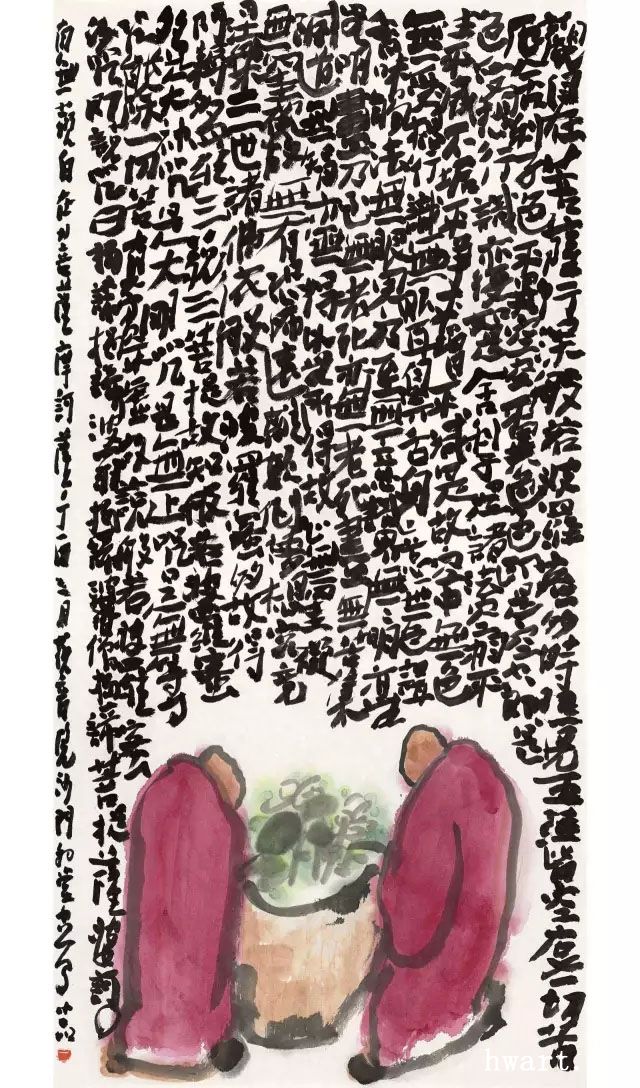 觀自在菩薩行深般若波羅蜜多時照見五蘊皆空度一切苦
厄舍利子色不異空空不異色色即是空空即是
色受想行識亦復如是舍利子是諸法空相不
生不滅不垢不淨不增不減是故空中無色
無受想行識無眼耳鼻舌身意無色聲
香味觸法無眼界乃至無意識界無無明亦
無明盡乃至無老死亦無老死盡無苦集
滅道無智亦無得以無所得故無罣礙
無罣礙故無有恐怖遠離顛倒夢想究竟
涅槃三世諸佛依般若波羅蜜多故得
阿耨多羅三藐三菩提故知般若波羅蜜
多是大神咒是大明咒是無上咒是無等等
咒能除一切苦真實不虛故說般若波羅蜜多
咒即說咒曰揭諦揭諦波羅揭諦波羅僧揭諦菩提薩婆訶
南無觀自在菩薩摩訶薩丁酉三月沙門
hwart.